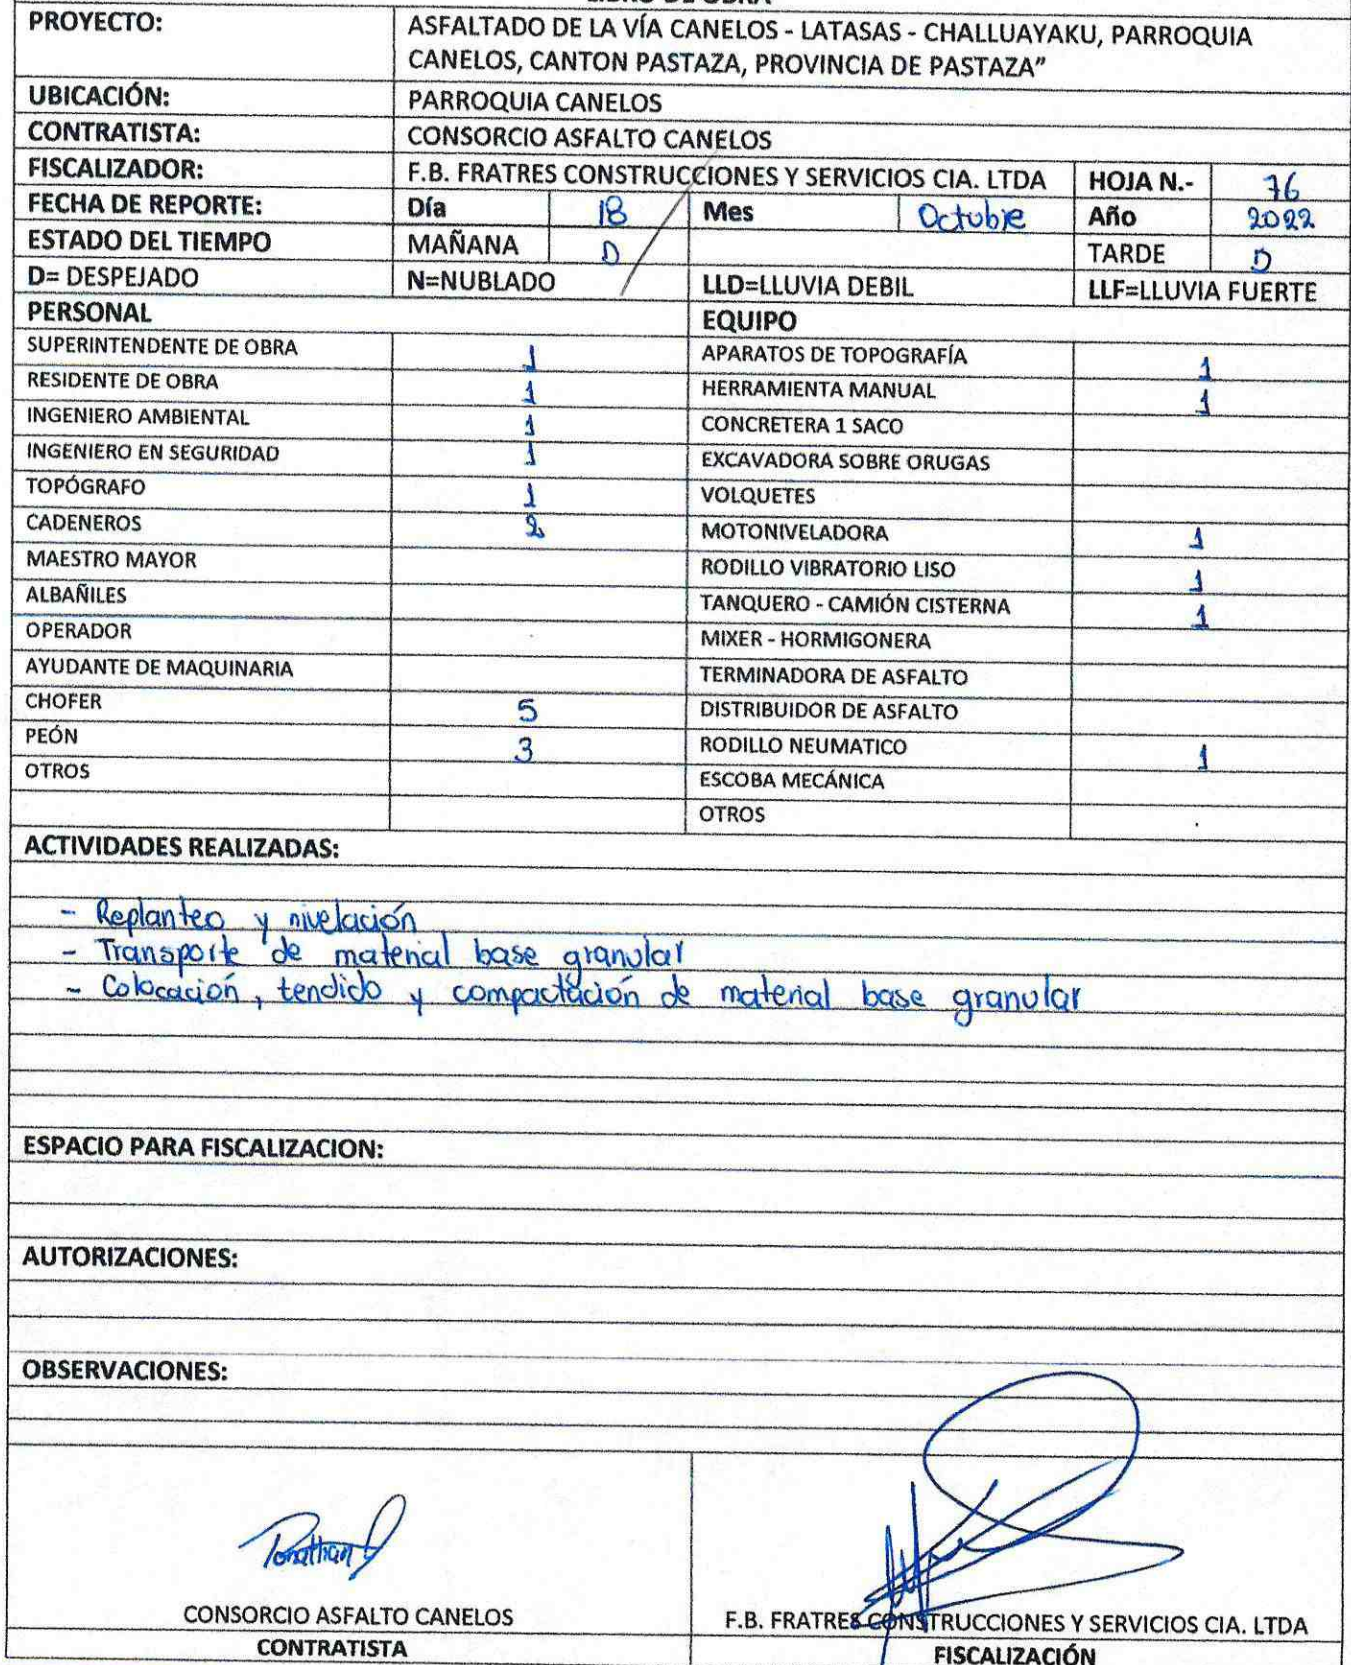 LIBRO DE OBRA
PROYECTO: ASFALTADO DE LA VÍA CANELOS - LATASAS - CHALLUAYAKU, PARROQUIA
CANELOS, CANTON PASTAZA, PROVINCIA DE PASTAZA"
UBICACIÓN: PARROQUIA CANELOS
CONTRATISTA: CONSORCIO ASFALTO CANELOS
FISCALIZADOR: F.B. FRATRES CONSTRUCCIONES Y SERVICIOS CIA. LTDA HOJA N.- 76
FECHA DE REPORTE: Día 18 Mes Octubre Año 2022
ESTADO DEL TIEMPO MAÑANA D TARDE D
D= DESPEJADO N=NUBLADO LLD=LLUVIA DEBIL LLF=LLUVIA FUERTE
PERSONAL EQUIPO
SUPERINTENDENTE DE OBRA 1 APARATOS DE TOPOGRAFÍA 1
RESIDENTE DE OBRA 1 HERRAMIENTA MANUAL 1
INGENIERO AMBIENTAL 1 CONCRETERA 1 SACO
INGENIERO EN SEGURIDAD 1 EXCAVADORA SOBRE ORUGAS
TOPÓGRAFO 1 VOLQUETES
CADENEROS 2 MOTONIVELADORA 1
MAESTRO MAYOR RODILLO VIBRATORIO LISO 1
ALBAÑILES TANQUERO - CAMIÓN CISTERNA 1
OPERADOR MIXER - HORMIGONERA
AYUDANTE DE MAQUINARIA TERMINADORA DE ASFALTO
CHOFER 5 DISTRIBUIDOR DE ASFALTO
PEÓN 3 RODILLO NEUMATICO 1
OTROS ESCOBA MECÁNICA
OTROS
ACTIVIDADES REALIZADAS:
- Replanteo y nivelación
- Transporte de material base granular
- Colocación, tendido y compactación de material base granular
ESPACIO PARA FISCALIZACION:
AUTORIZACIONES:
OBSERVACIONES:
CONSORCIO ASFALTO CANELOS F.B. FRATRES CONSTRUCCIONES Y SERVICIOS CIA. LTDA
CONTRATISTA FISCALIZACIÓN